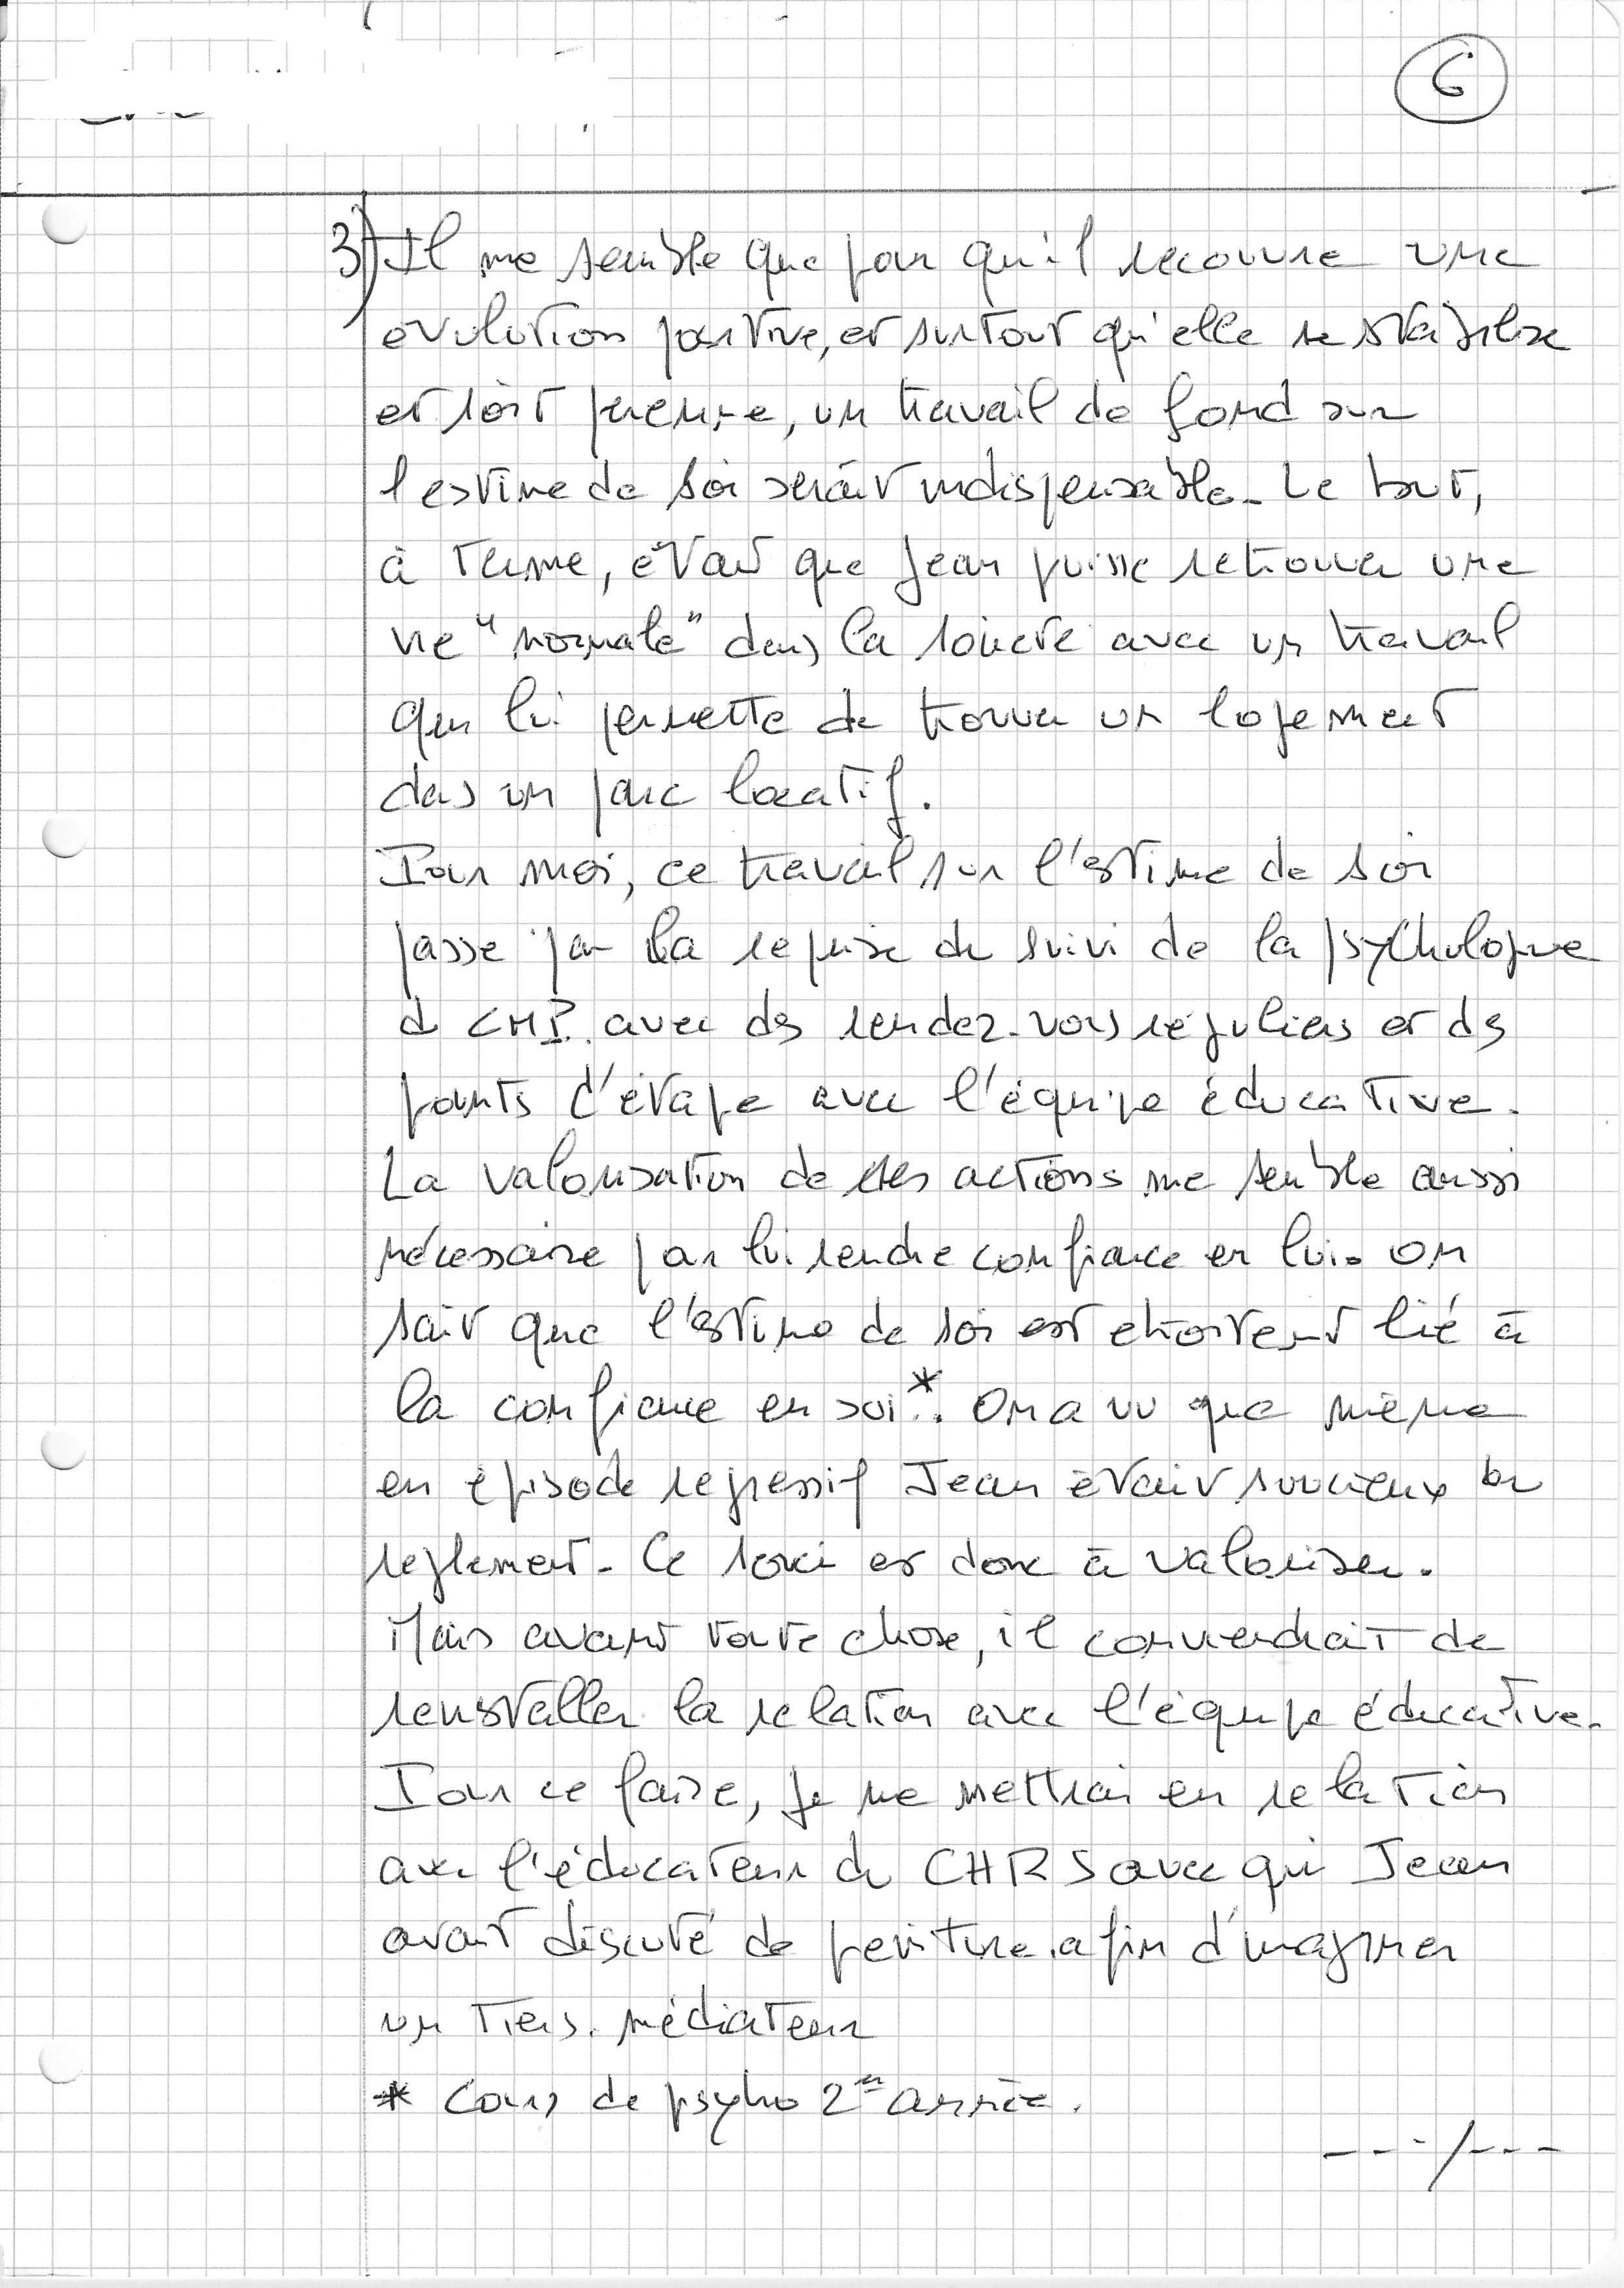 6
3) Il me semble que pour qu'il recouvre une
évolution positive, et surtout qu'elle se stabilise
et soit pérenne, un travail de fond sur
l'estime de soi serait indispensable. Le but,
à terme, étant que Jean puisse retrouver une
vie "normale" dans la société avec un travail
qui lui permette de trouver un logement
dans un parc locatif.
Pour moi, ce travail sur l'estime de soi
passe par la reprise du suivi de la psychologue
du CMP. avec des rendez-vous réguliers et des
points d'étape avec l'équipe éducative.
La valorisation de ses actions me semble aussi
nécessaire pour lui rendre confiance en lui. On
sait que l'estime de soi est etroitement lié à
la confiance en soi*. On a vu que même
en épisode regressif Jean était soucieux du
reglement. Ce souci est donc à valoriser.
Mais avant toute chose, il conviendrait de
reinstaller la relation avec l'équipe éducative.
Pour ce faire, je me mettrai en relation
avec l'éducateur du CHRS avec qui Jean
avait discuté de peinture afin d'imaginer
un tiers. médiateur
* Cours de psycho 2ème année.
---/---